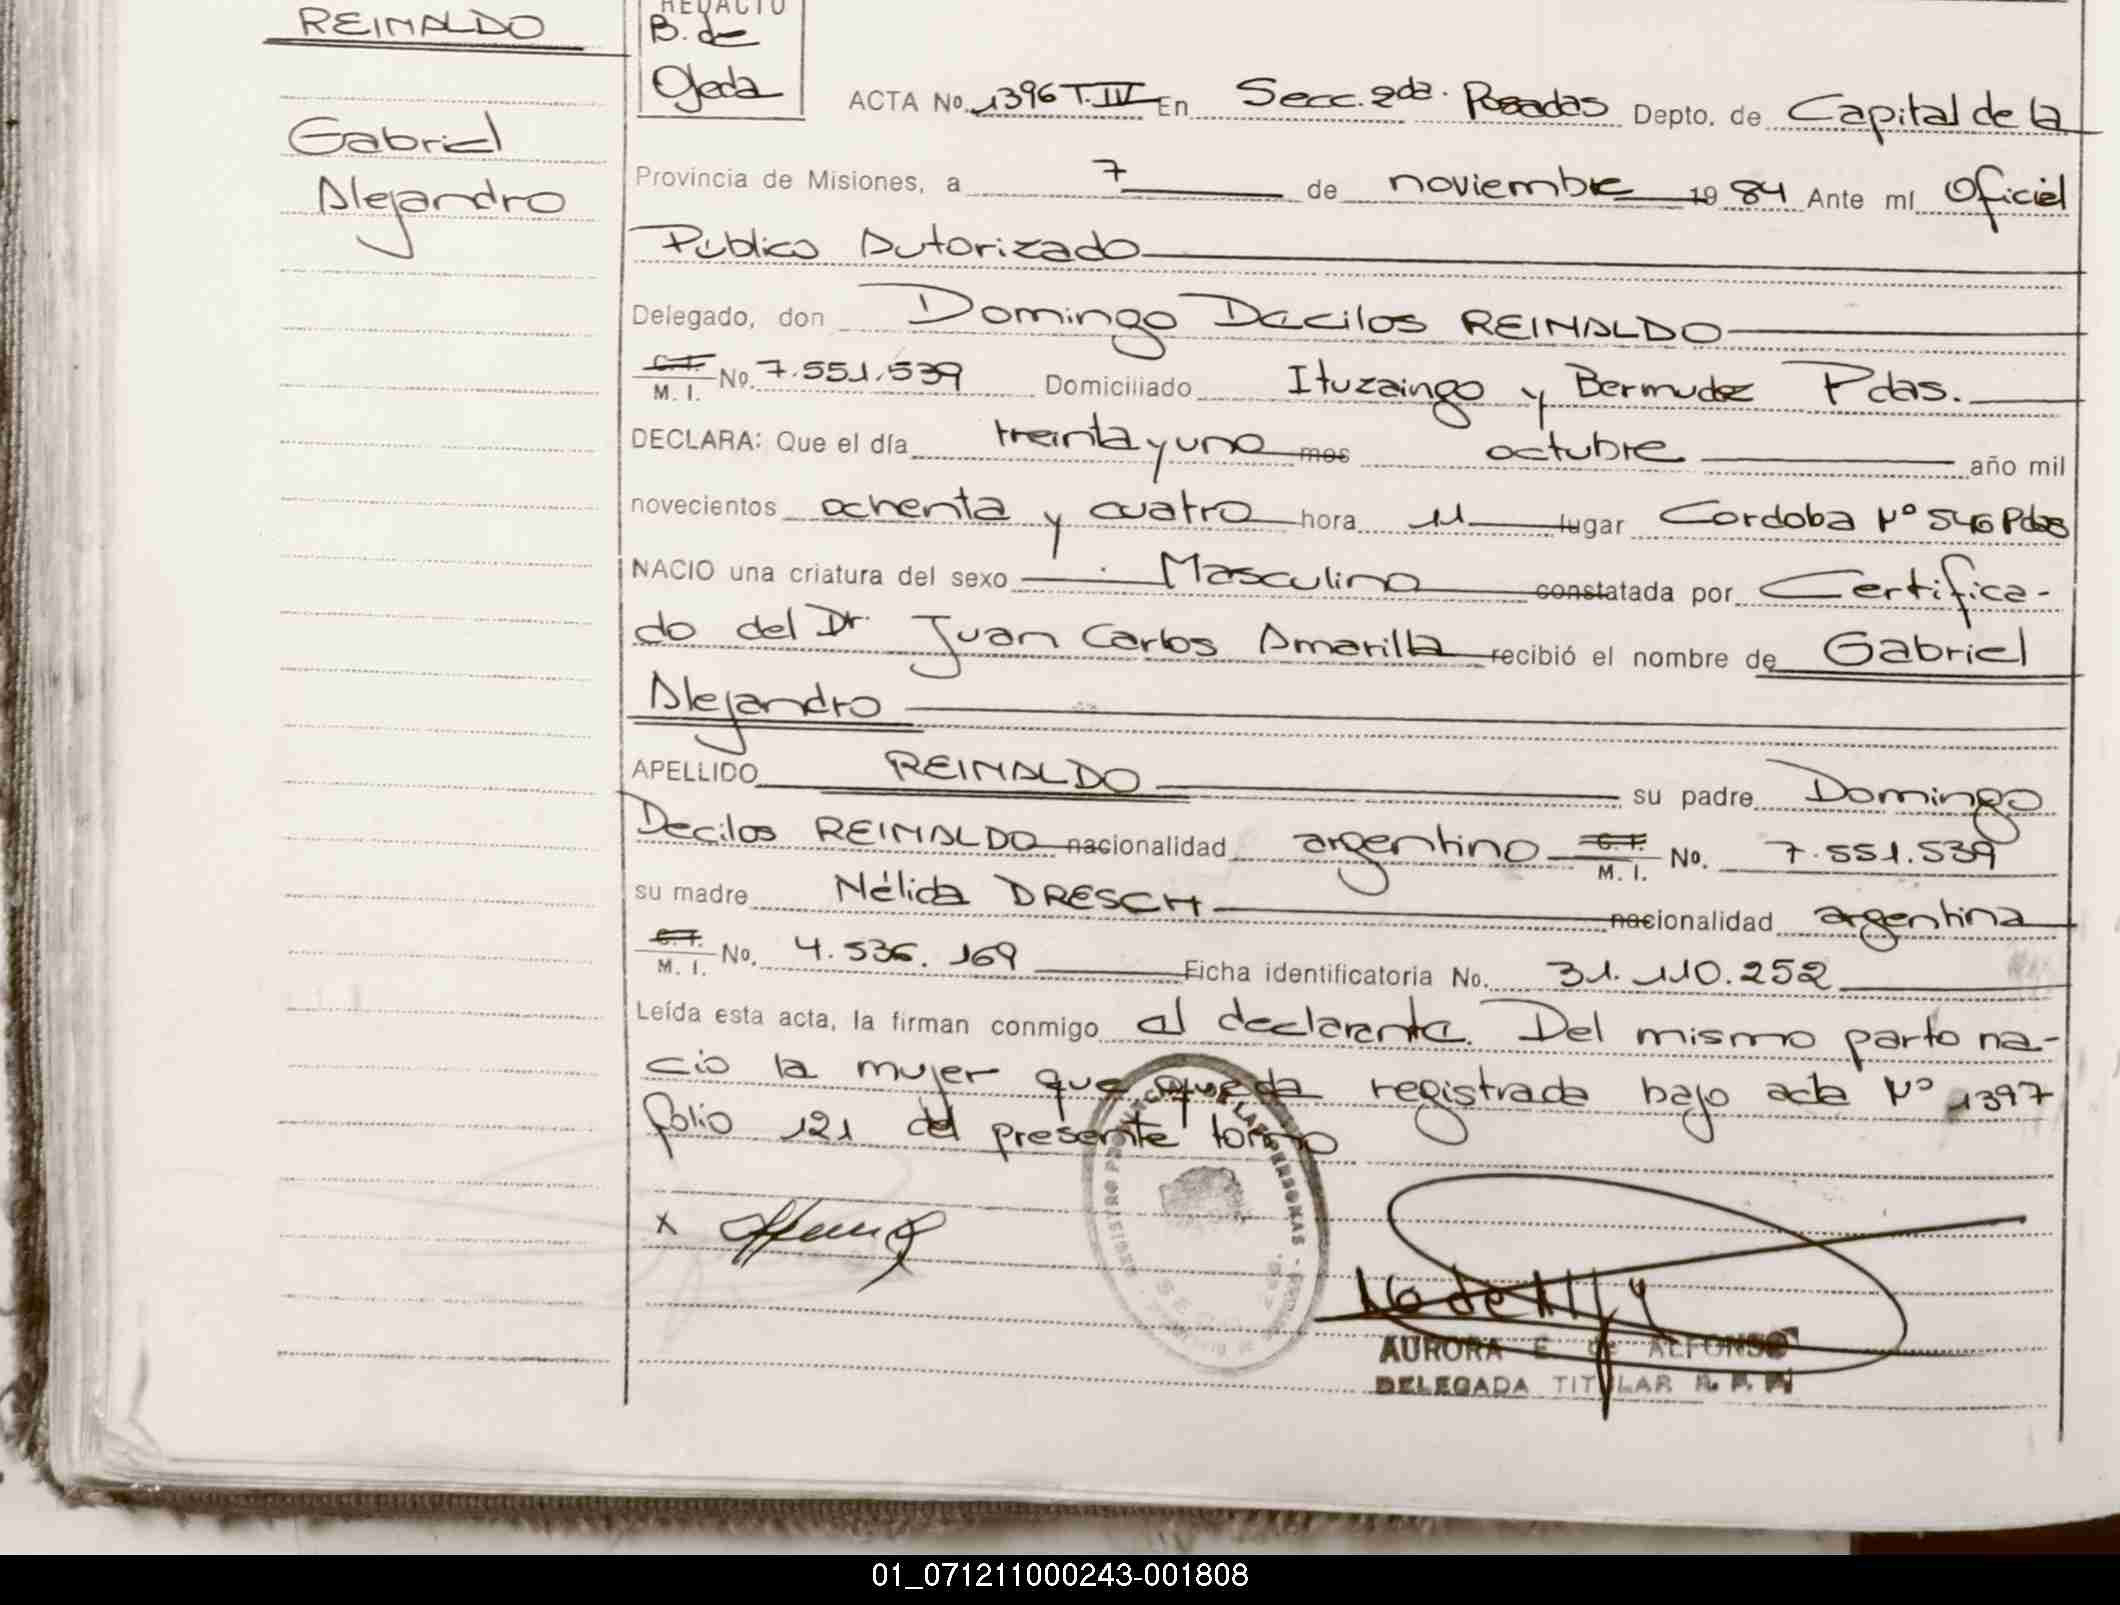 REINALDO
Gabriel
Alejandro
REDACTO
B. de
Ojeda
ACTA No. 1396 T. IV En Secc. 2da. Posadas Depto. de Capital de la
Provincia de Misiones, a 7 de noviembre 1984 Ante mí Oficial
Público Autorizado
Delegado, don Domingo Decilos REINALDO
C. I.
M. I. No. 7.551.539 Domiciliado Ituzaingo y Bermudez Pdas.
DECLARA: Que el día treinta y uno mes octubre año mil
novecientos ochenta y cuatro hora 11 lugar Cordoba Nº 546 Pdas
NACIO una criatura del sexo Masculino constatada por Certifica-
do del Dr. Juan Carlos Amarilla recibió el nombre de Gabriel
Alejandro
APELLIDO REINALDO su padre Domingo
Decilos REINALDO nacionalidad argentino C. I.
M. I. No. 7.551.539
su madre Nélida DRESCH nacionalidad argentina
C. I.
M. I. No. 4.536.169 Ficha identificatoria No. 31.110.252
Leída esta acta, la firman conmigo al declarante. Del mismo parto na-
cio la mujer que queda registrada bajo acta Nº 1397
folio 121 del presente tomo
x
AURORA E. de ALFONSO
DELEGADA TITULAR R. P. P.
01_071211000243-001808